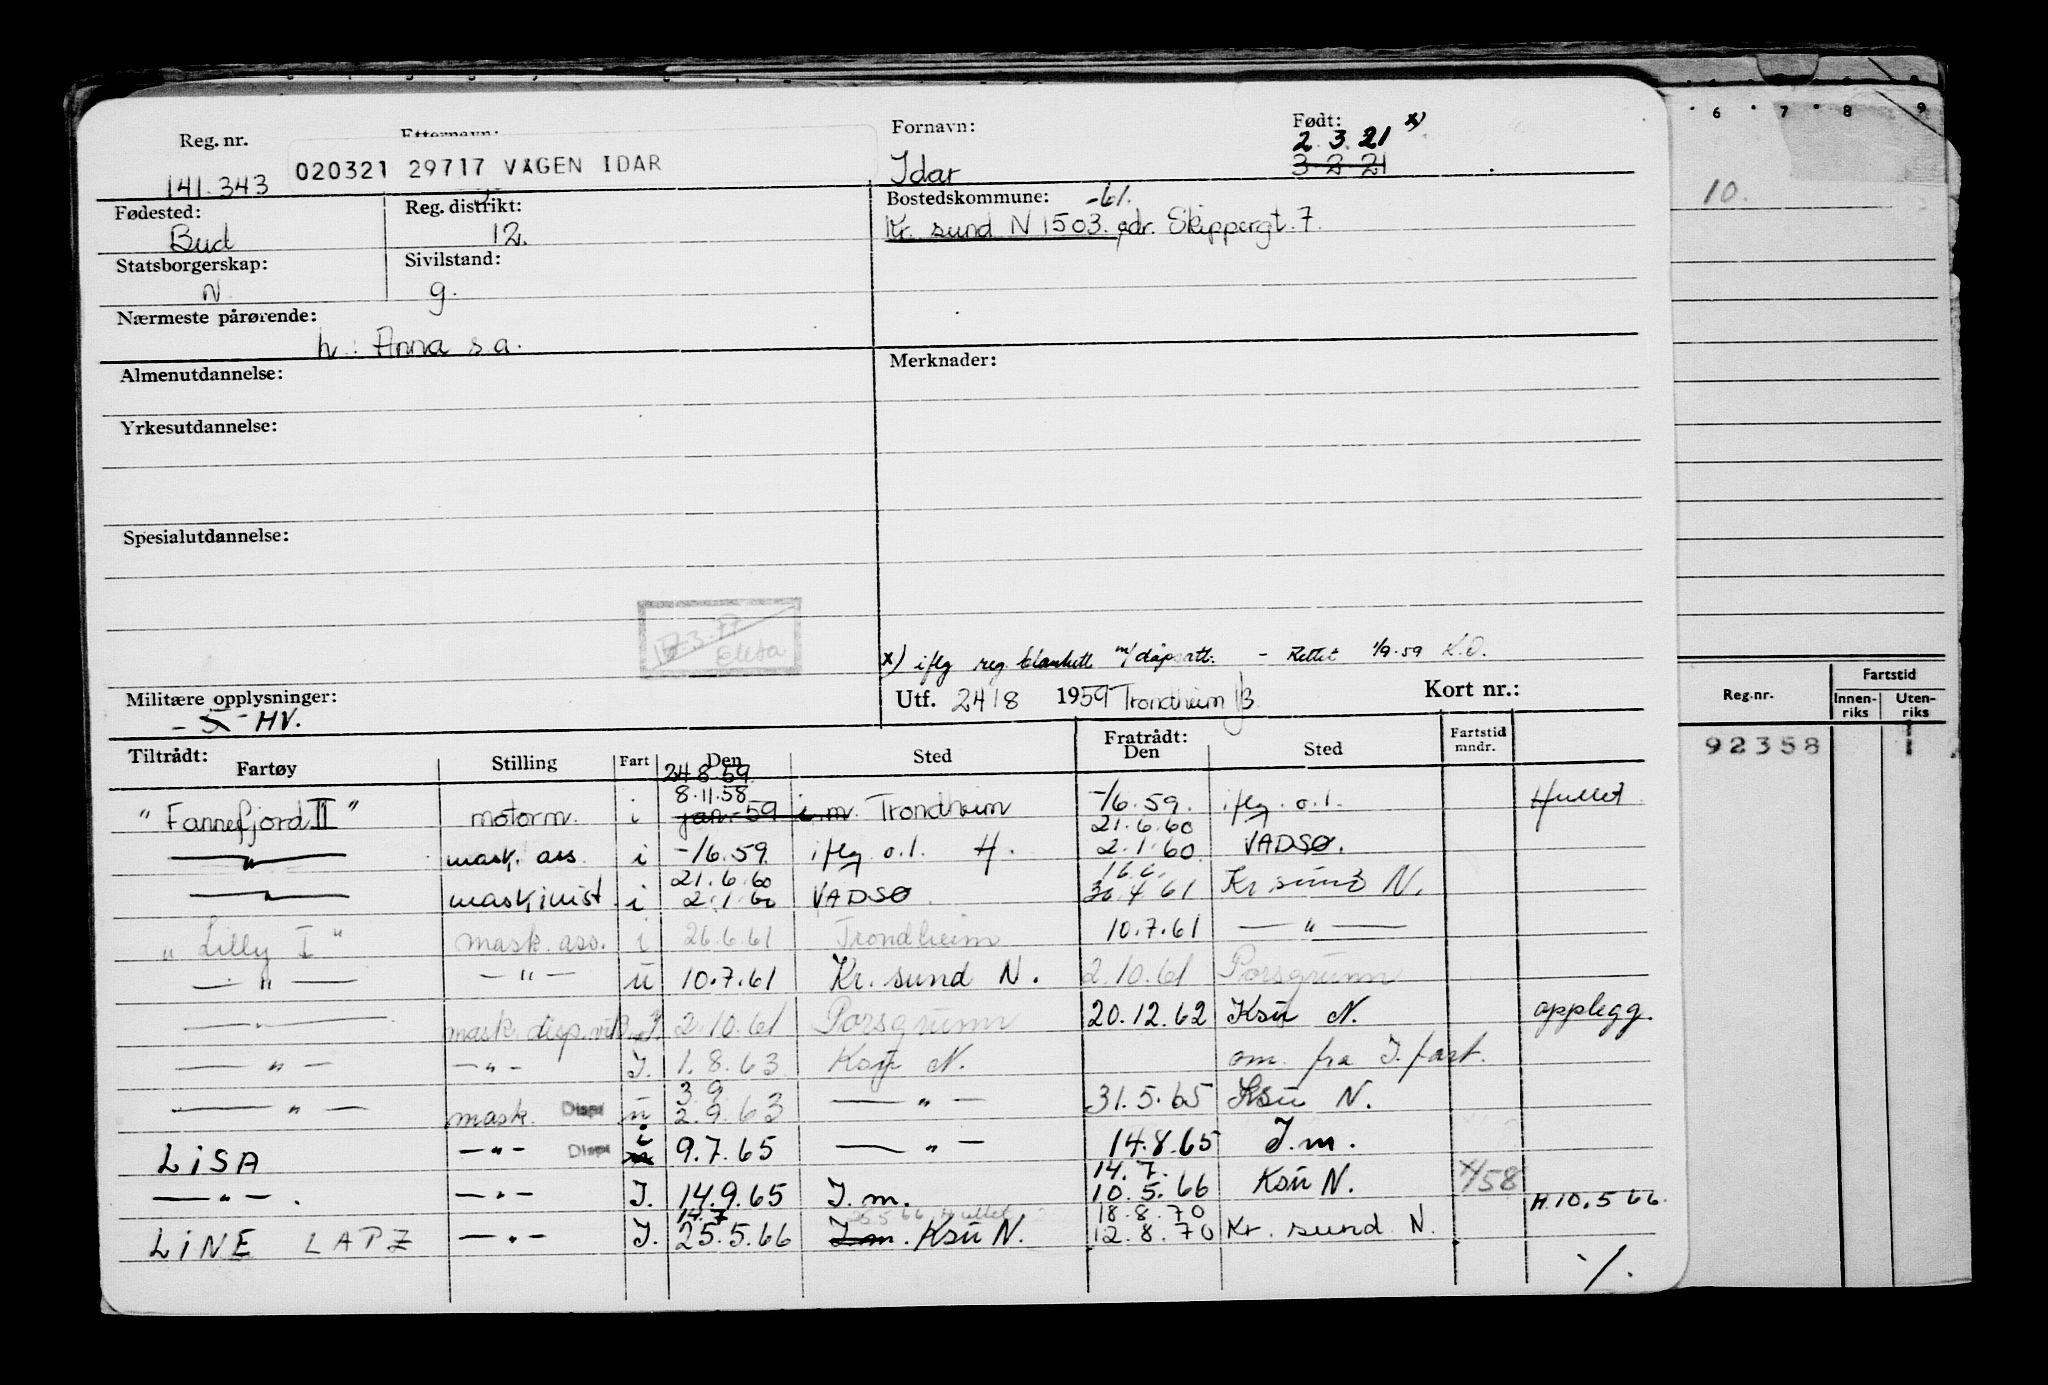 Reg. nr. Etternavn: Fornavn: Født:
2.3.21 x)
141.343 020321 29717 VÅGEN IDAR Idar 3-2-21
Fødested: Reg. distrikt: Bostedskommune: -61.
Bud 12. Kr. sund N 1503. adr. Skippergt. 7.
Statsborgerskap: Sivilstand:
N. g.
Nærmeste pårørende:
h.: Anna s.a.
Almenutdannelse: Merknader:
Yrkesutdannelse:
Spesialutdannelse:
x) iflg reg blankett m/dåpsatt. - Rettet 1/9.59 K.O.
Militære opplysninger: Utf. 24/8 1959 Trondheim Kort nr.:
HV.
Tiltrådt: Fratrådt:
Fartøy Stilling Fart Den Sted Den Sted Fartstid mndr.
24.8.59
8.11.58
"Fannefjord II" motorm. i jan.-59 i.m. Trondheim -/6.59. iflg. o.l. Hullet
21.6.60
—"— mask. ass. i -/6.59 iflg. o.l. H. 2.1.60 VADSØ.
21.6.60 16.6.
—"— maskinist i 2.1.60 VADSØ 30.4.61 Kr sund N.
"Lilly I" mask. ass. i 26.6.61 Trondheim 10.7.61 —"—
—"— —"— u 10.7.61 Kr. sund N. 2.10.61 Porsgrunn
—"— mask. disp. 2.10.61 Porsgrunn 20.12.62 Ksu N. opplegg.
—"— —"— I. 1.8.63 Ksu N. om. fra I. fart.
3.9
—"— mask. Disp u 2.9.63 —"— 31.5.65 Ksu N.
LISA —"— Disp i 9.7.65 —"— 14.8.65 I.m.
14.7.
—"—. —"— I. 14.9.65 I.m. 10.5.66 Ksu N. H.10.5 66.
14.7 25.5 66 Hullet 18.8.70
LINE LAPZ —"— I. 25.5.66 I.m. Ksu N. 12.8.70 Kr. sund N.
./.
6 7 8 9
10.
Reg.nr. Fartstid
Innen-riks Uten-riks
92358 1